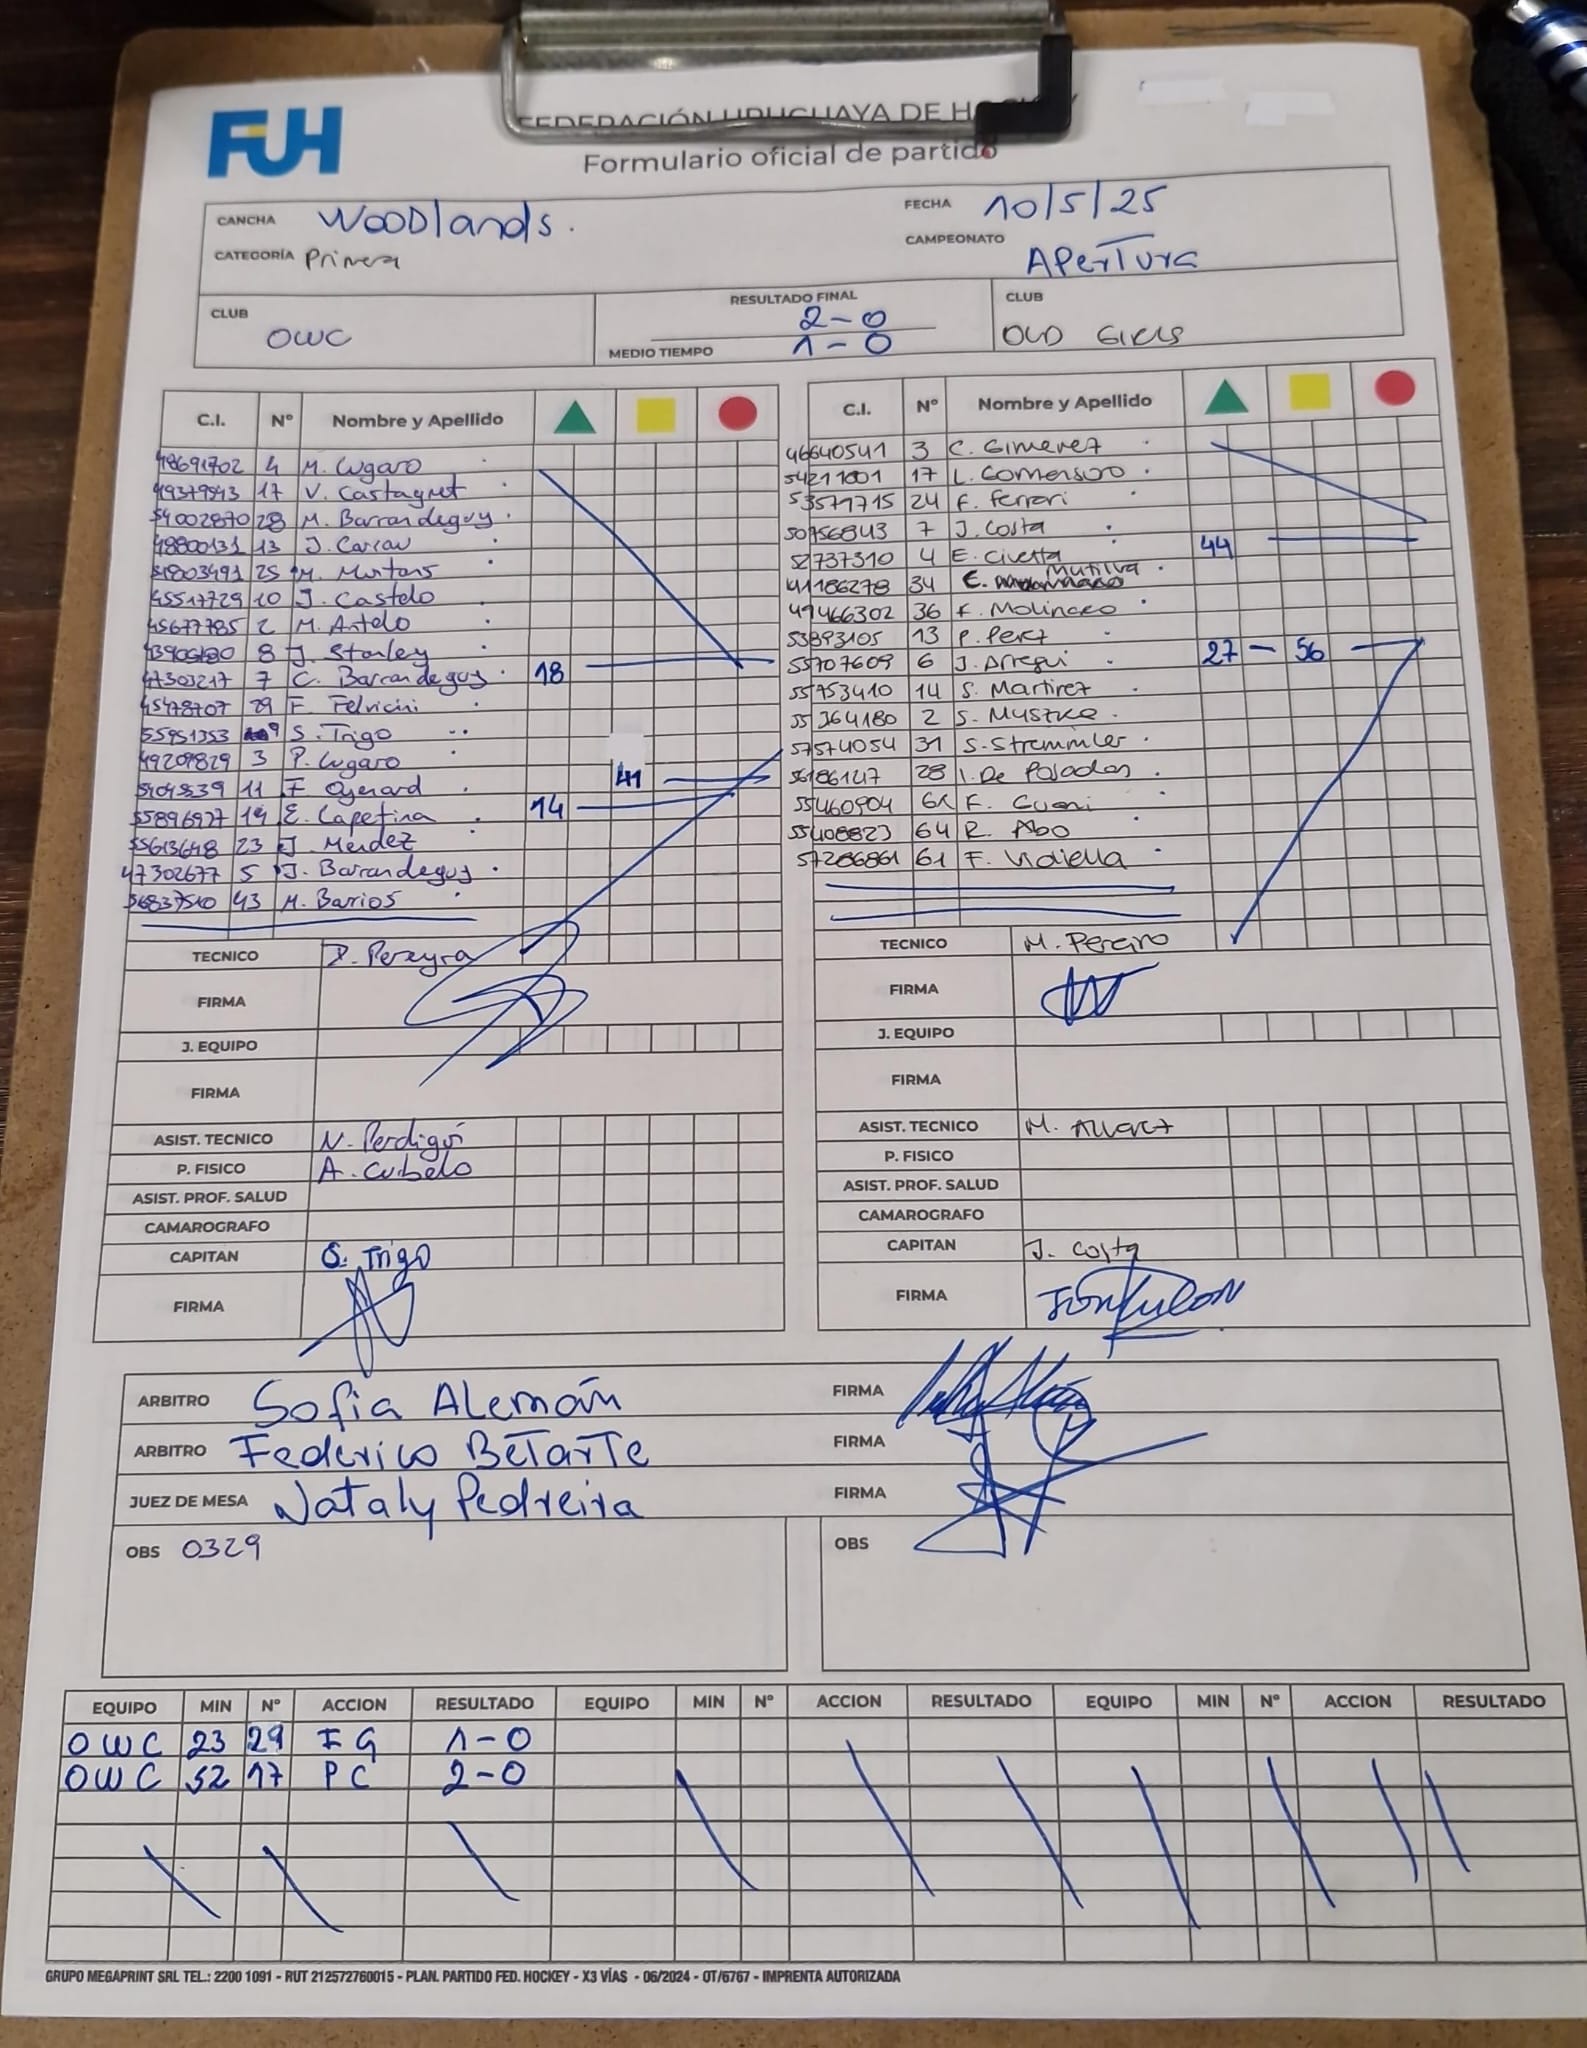 FUH
FEDERACIÓN URUGUAYA DE
Formulario oficial de partido
CANCHA Woodlands.
FECHA 10/5/25
CATEGORÍA Primera
CAMPEONATO APERTURA
CLUB OWC
RESULTADO FINAL 2-0
MEDIO TIEMPO 1-0
CLUB OLD GIRLS
C.I. Nº Nombre y Apellido
48691702 4 M. Lugaro
17 V. Castagnet
54002870 28 M. Barrandeguy
48800131 13 J.
25 M.
45517729 10 J. Castelo
45677785 2 M. Antelo
8 J. Stanley
47303217 7 C. Barrandeguy 18
45478707 29 F.
55951353 9 S. Trigo
49209829 3 P. Lugaro
11 F. 41
55896927 14 E. Capetina 14
55613648 23 J. Mendez
47302677 5 J. Barrandeguy
56837510 43 M. Barrios
TECNICO D. Pereyra
FIRMA
J. EQUIPO
FIRMA
ASIST. TECNICO N. Perdigón
P. FISICO A. Cubelo
ASIST. PROF. SALUD
CAMAROGRAFO
CAPITAN S. Trigo
FIRMA
C.I. Nº Nombre y Apellido
46640541 3 C. Gimenez
54211001 17 L. Comensoro
53571715 24 F. Ferrari
50756843 7 J. Costa
52737310 4 E. Civetta 44
41186278 34 E. Mutilva
49466302 36 F. Molinero
53893105 13 P. Perez
55707609 6 J. Arregui 27 - 56
55753410 14 S. Martirez
55364180 2 S. Mystka
57574054 31 S. Stremmler
56186127 28 I. De Posadas
55460904 F.
55408823 64 R. Abo
57286861 61 F. Vidiella
TECNICO M. Pereiro
FIRMA
J. EQUIPO
FIRMA
ASIST. TECNICO M. Alvarez
P. FISICO
ASIST. PROF. SALUD
CAMAROGRAFO
CAPITAN J. Costa
FIRMA
ARBITRO Sofia Alemán FIRMA
ARBITRO Federico BETARTE FIRMA
JUEZ DE MESA Nataly Pedreira FIRMA
OBS 0329
OBS
EQUIPO MIN Nº ACCION RESULTADO EQUIPO MIN Nº ACCION RESULTADO EQUIPO MIN Nº ACCION RESULTADO
OWC 23 29 FG 1-0
OWC 52 17 PC 2-0
GRUPO MEGAPRINT SRL TEL.: 2200 1091 - RUT 212572760015 - PLAN. PARTIDO FED. HOCKEY - X3 VÍAS - 06/2024 - OT/6767 - IMPRENTA AUTORIZADA